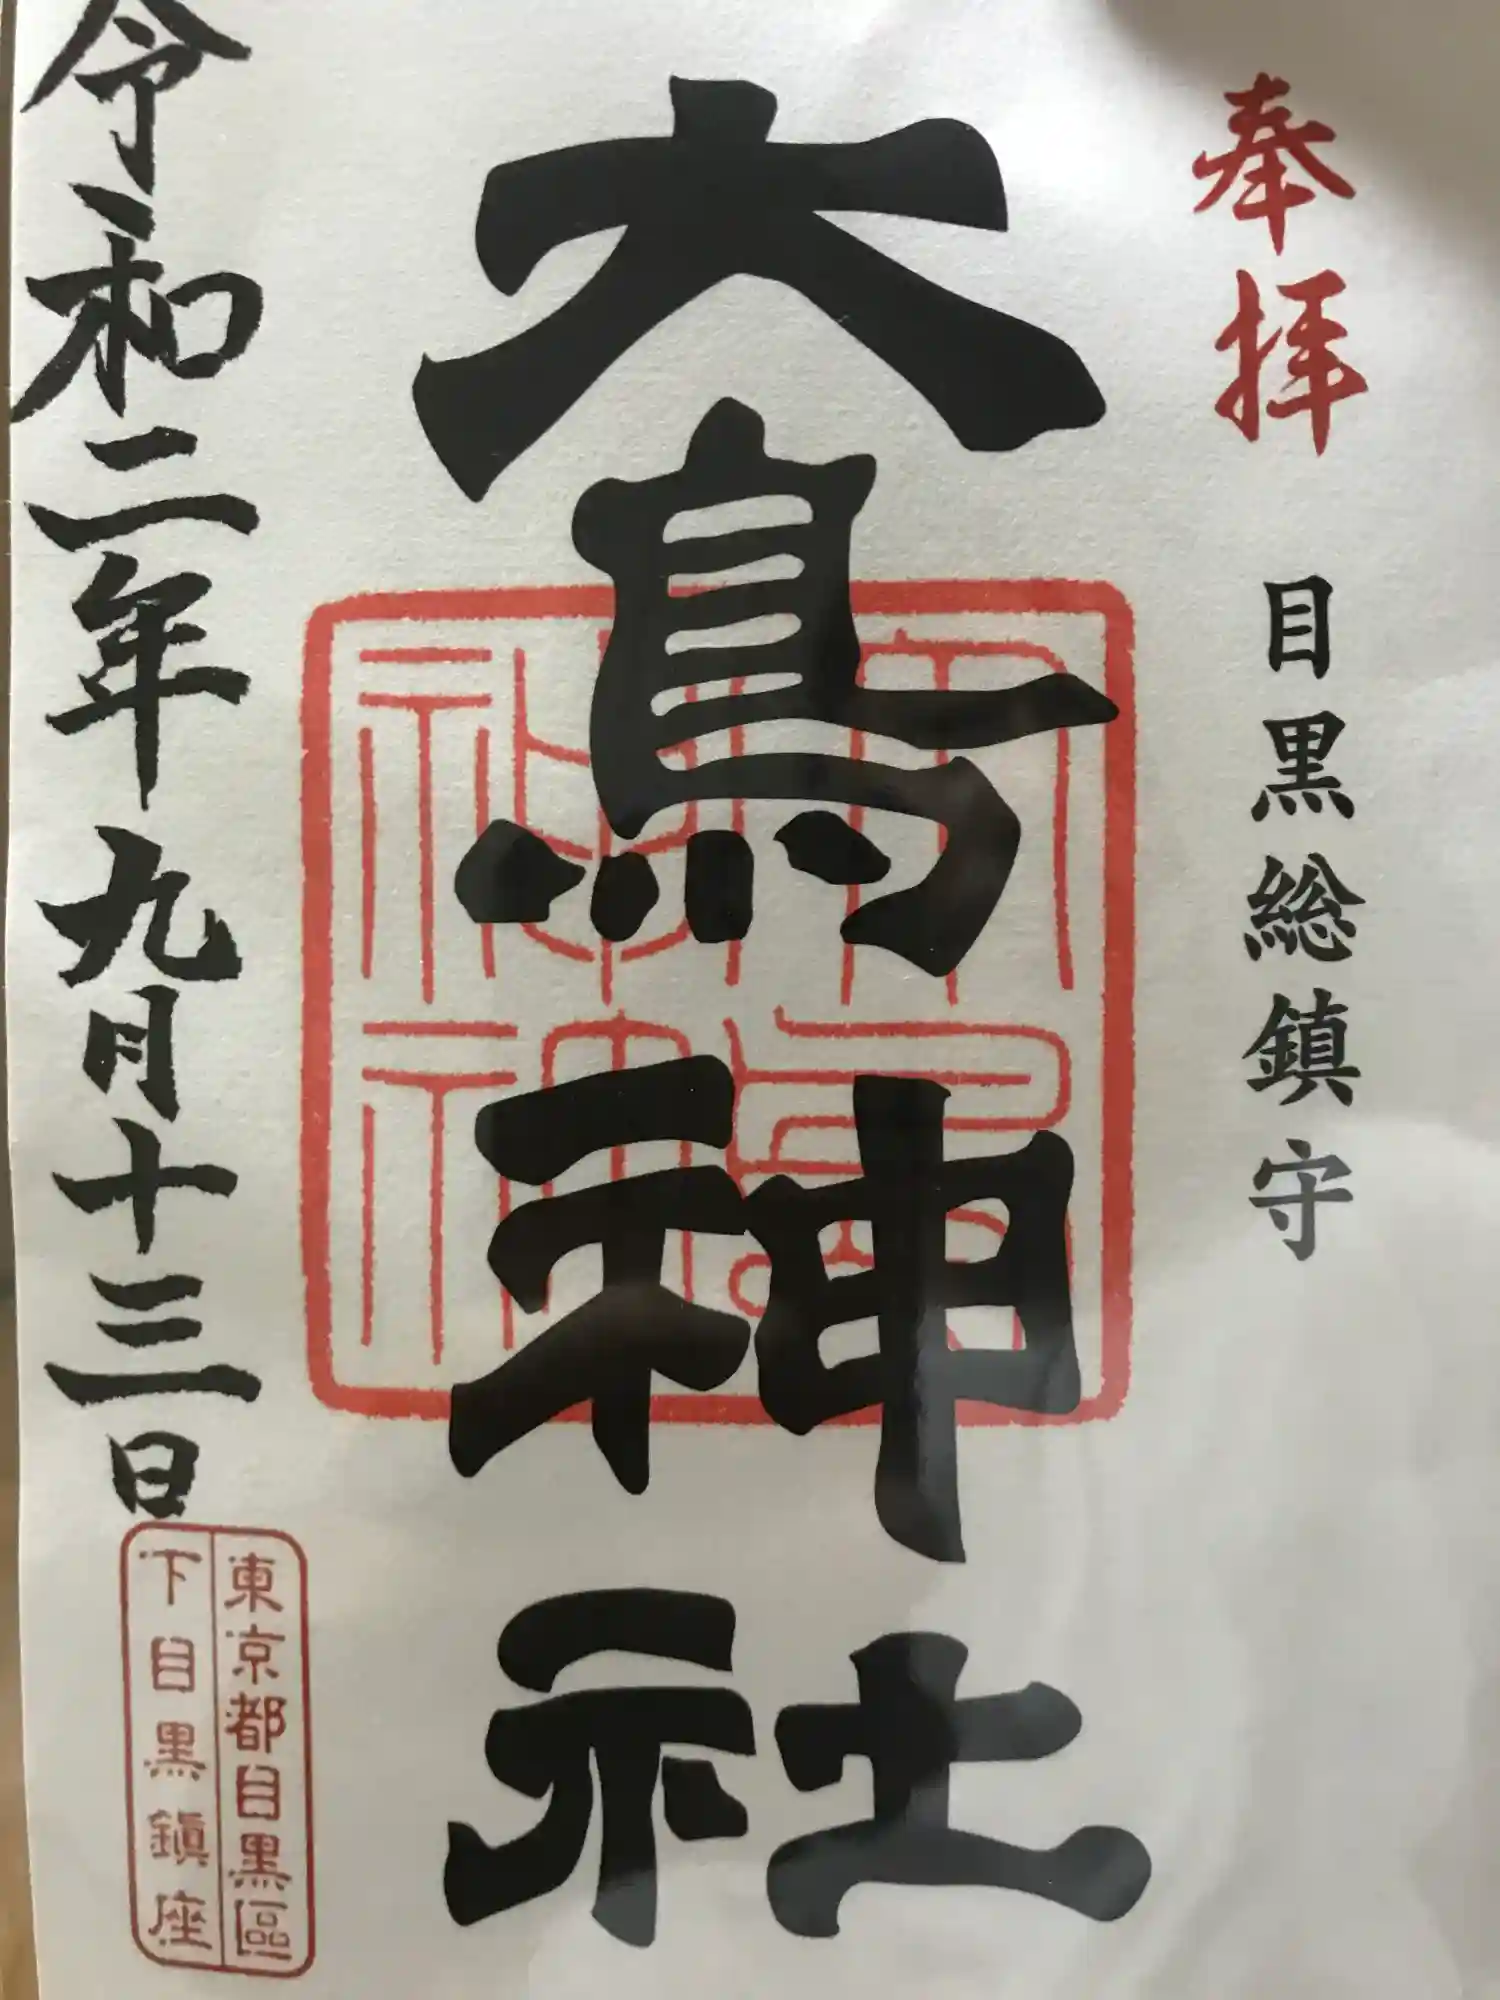 奉拝
目黒総鎮守
大鳥神社
大鳥
神社
令和二年九月十三日
東京都目黒區
下目黒鎭座